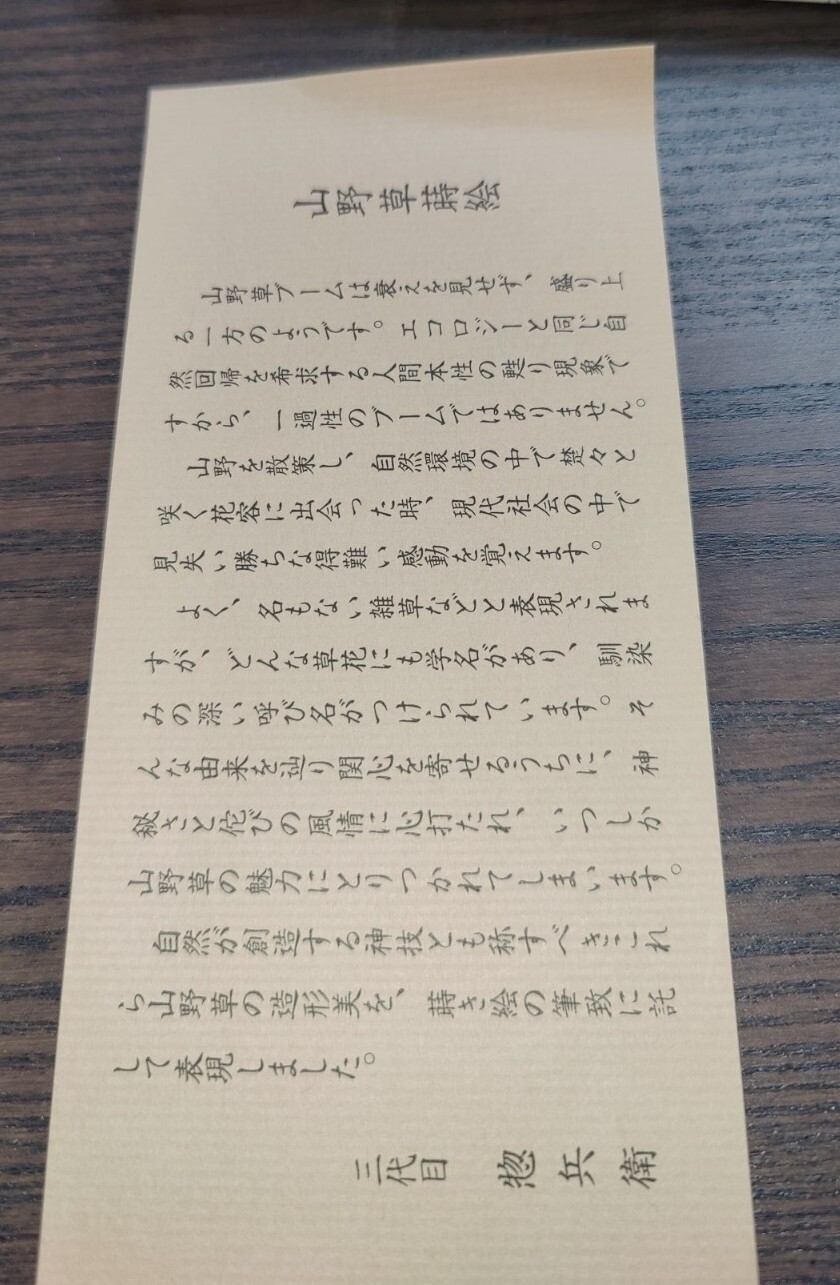 山野草蒔絵
山野草ブームは衰えを見せず、盛り上
る一方のようです。エコロジーと同じ自
然回帰を希求する人間本性の甦り現象で
すから、一過性のブームではありません。
山野を散策し、自然環境の中で楚々と
咲く花容に出会った時、現代社会の中で
見失い勝ちな得難い感動を覚えます。
よく、名もない雑草などと表現されま
すが、どんな草花にも学名があり、馴染
みの深い呼び名がつけられています。そ
んな由来を辿り関心を寄せるうちに、神
秘さと侘びの風情に心打たれ、いつしか
山野草の魅力にとりつかれてしまいます。
自然が創造する神技とも称すべきこれ
ら山野草の造形美を、蒔き絵の筆致に託
して表現しました。
三代目 惣兵衛